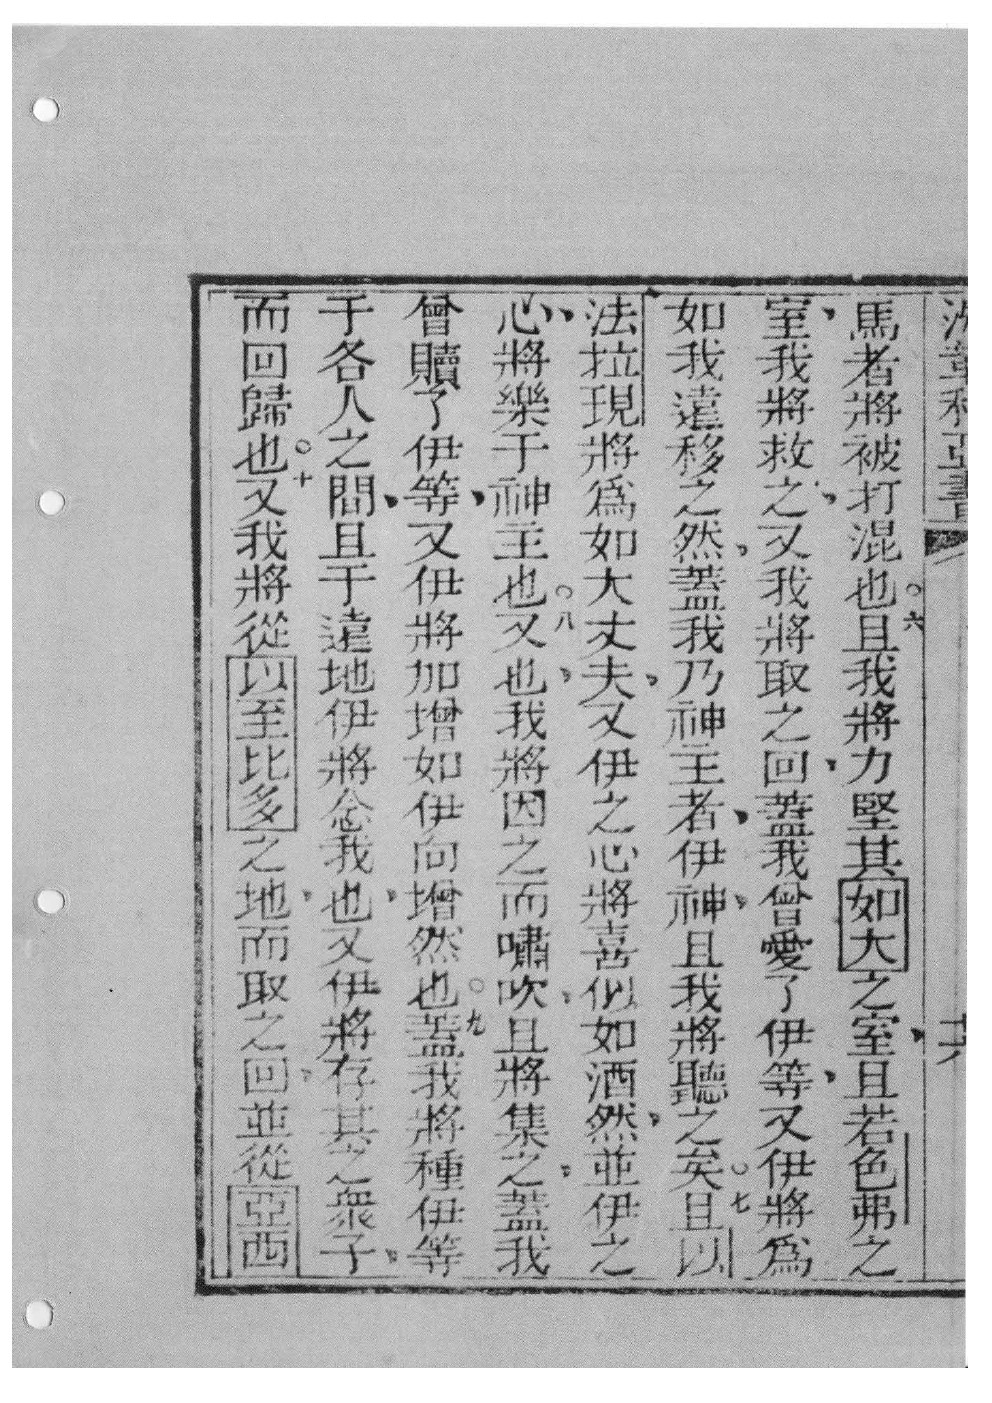 馬者將被打混也○六且我將力堅其如大之室、且若色弗之
室、我將救之、又我將取之回、蓋我曾愛了伊等、又伊將爲
如我遠移之然、蓋我乃神主者、伊神、且我將聽之矣○七且以
法拉現將爲如大丈夫、又伊之心將喜似如酒然、並伊之
心、將樂于神主也○八又也、我將因之而嘯吹、且將集之、蓋我
曾贖了伊等、又伊將加增如伊向增然也○九蓋我將種伊等
于各人之間、且于遠地伊將念我也、又伊將存其之衆子、
而回歸也○十又我將從以至比多之地、而取之回、並從亞西